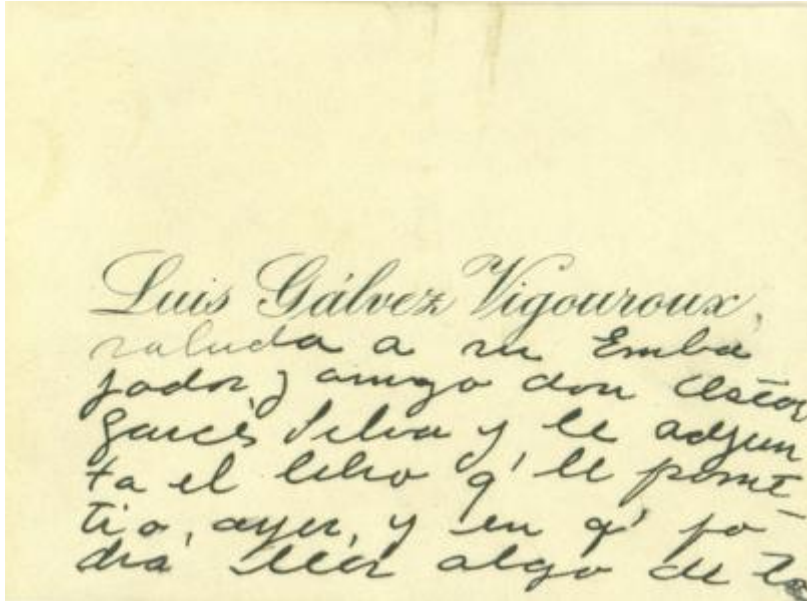 Luis Gálvez Vigouroux,
saluda a su Emba
jador, y amigo don
Garcés Silva y le adjun
ta el libro q' le prome-
tió, ayer, y en q' po-
drá leer algo de